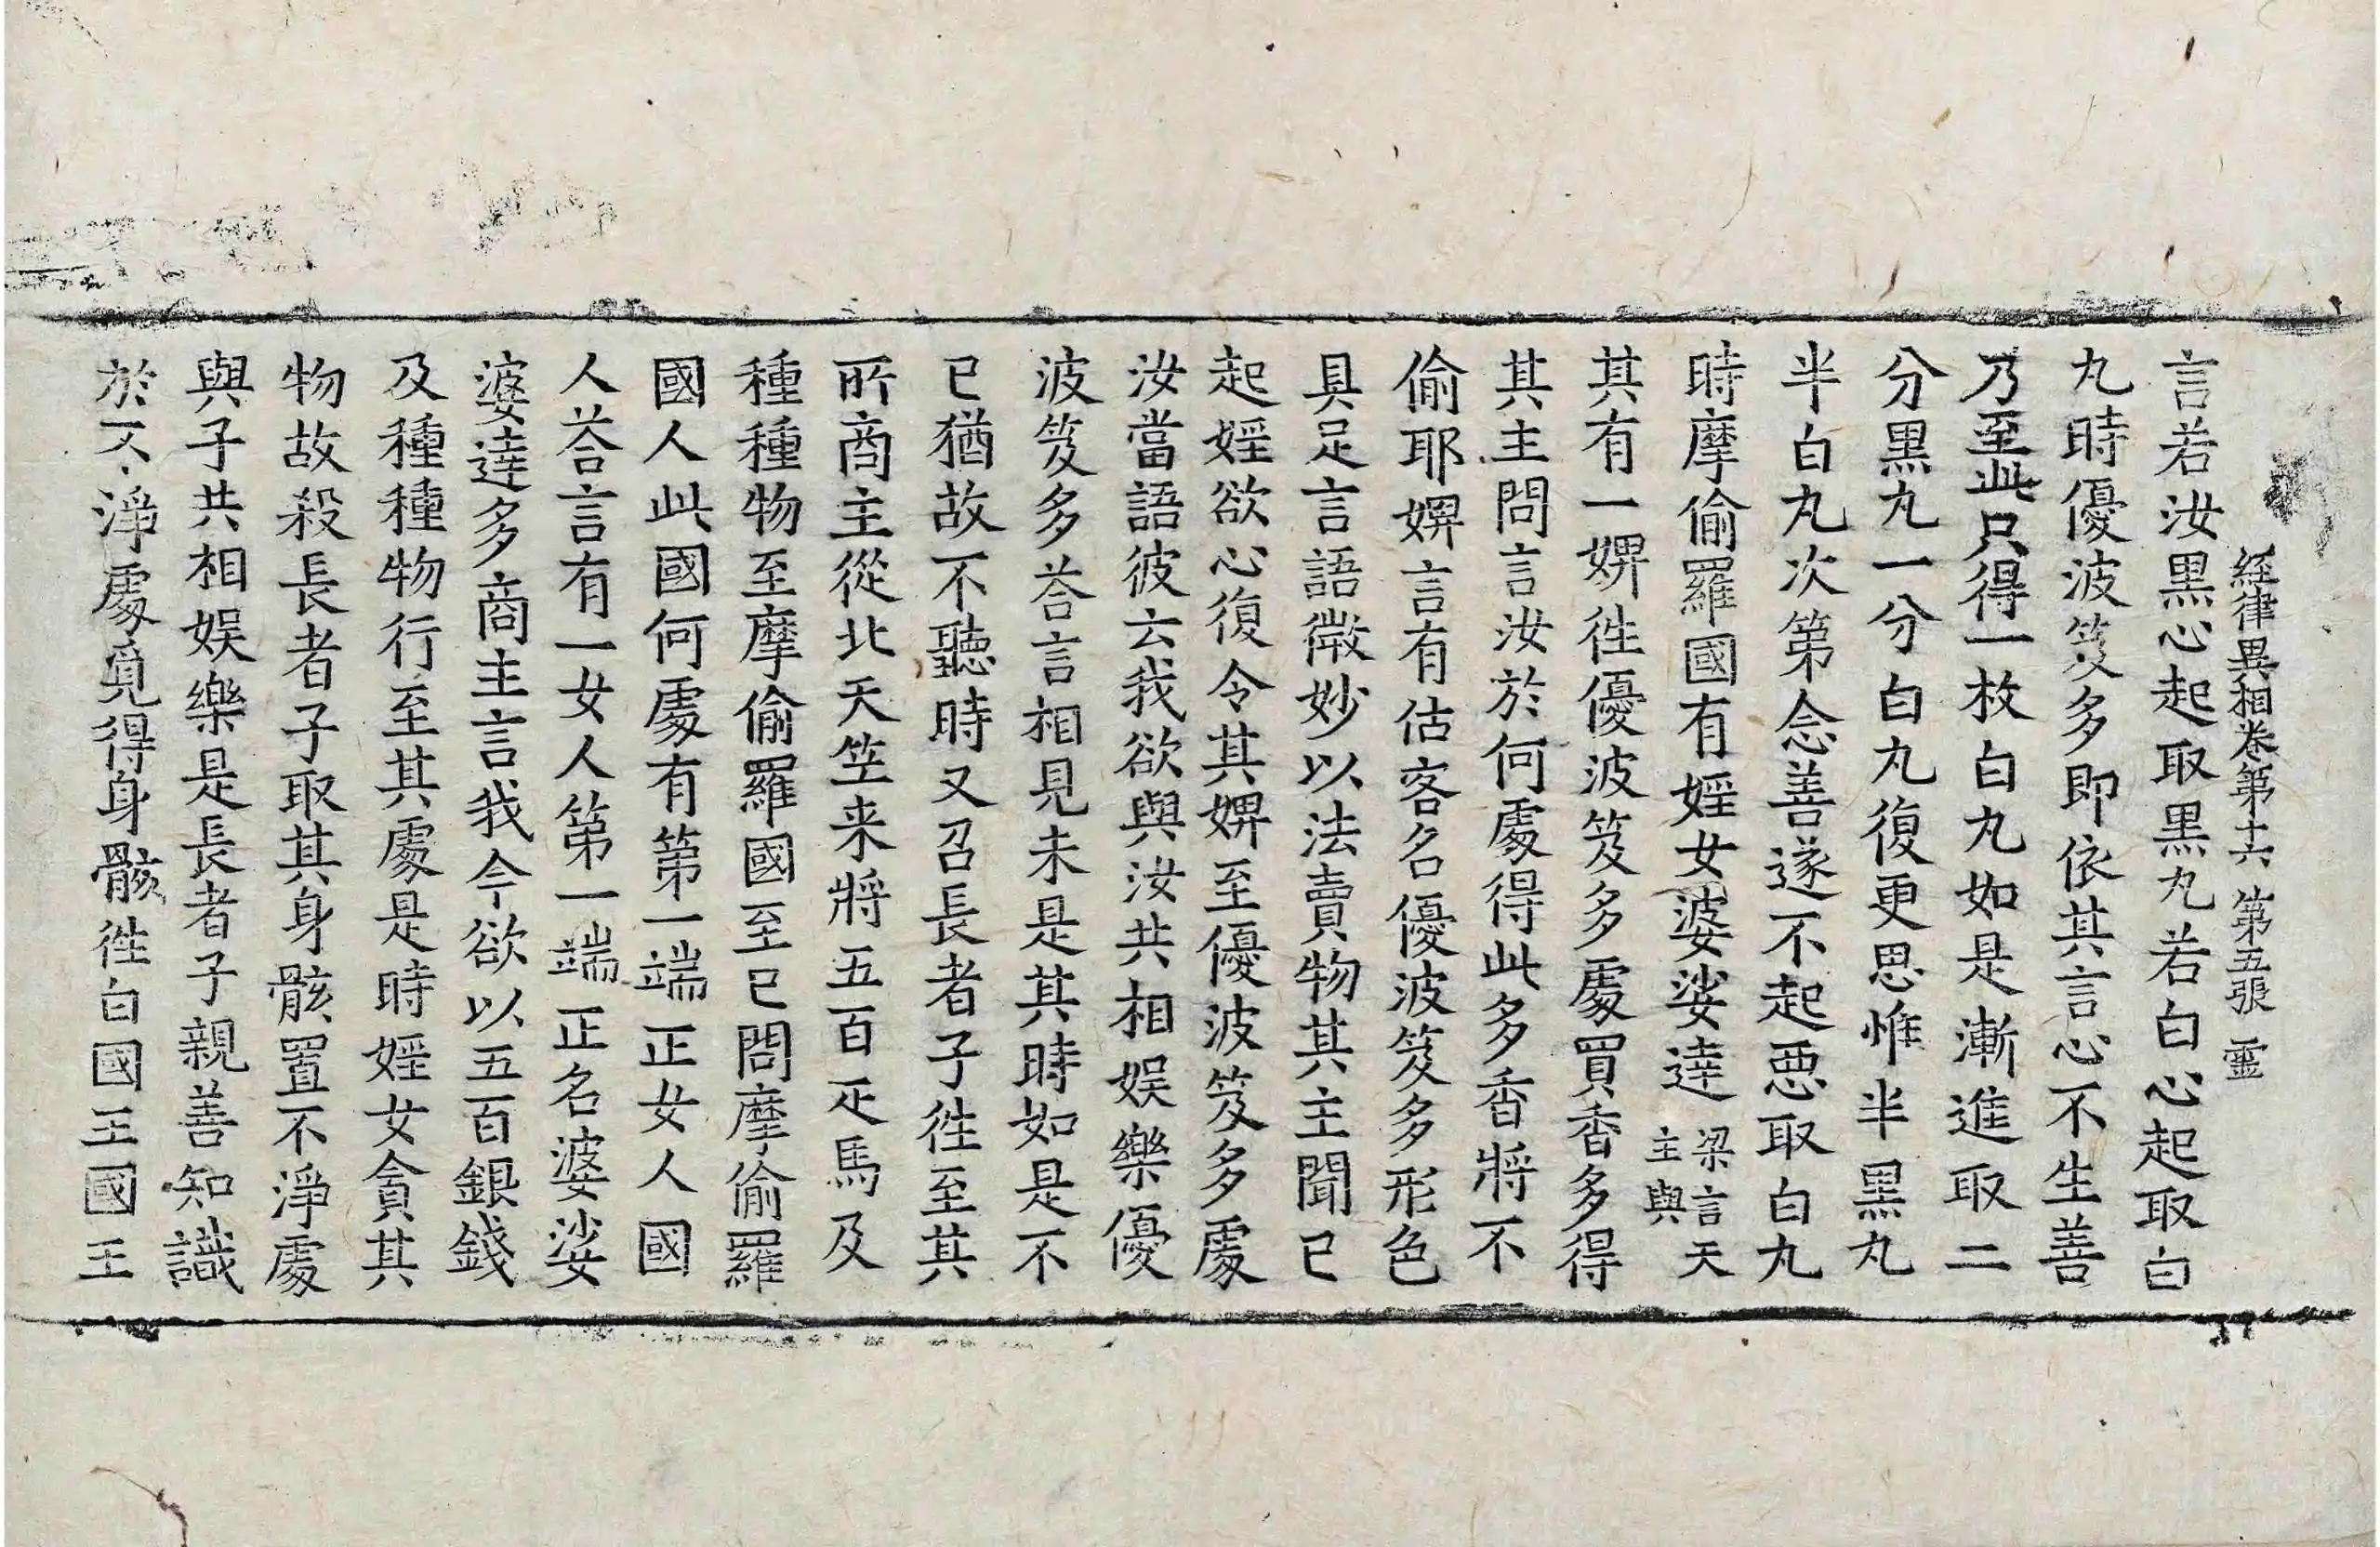 經律異相卷第十六 第五張 霊
言若汝黒心起取黒丸若白心起取白
丸時優波笈多即依其言心不生善
乃至此只得一枚白丸如是漸進取二
分黒丸一分白丸復更思惟半黒丸
半白丸次第念善遂不起悪取白丸
時摩偷羅國有婬女婆娑達梁言天主與
其有一婢徃優波笈多處買香多得
其主問言汝於何處得此多香將不
偷耶婢言有估客名優波笈多形色
具足言語微妙以法賣物其主聞已
起婬欲心復令其婢至優波笈多處
汝當語彼云我欲與汝共相娱樂優
波笈多荅言相見未是其時如是不
已猶故不聽時又召長者子徃至其
所商主從北天笁来將五百疋馬及
種種物至摩偷羅國至已問摩偷羅
國人此國何處有第一端正女人國
人荅言有一女人第一端正名婆娑
婆達多商主言我今欲以五百銀錢
及種種物行至其處是時婬女貪其
物故殺長者子取其身骸置不淨處
與子共相娱樂是長者子親善知識
於不淨處覓得身骸徃白國王國王